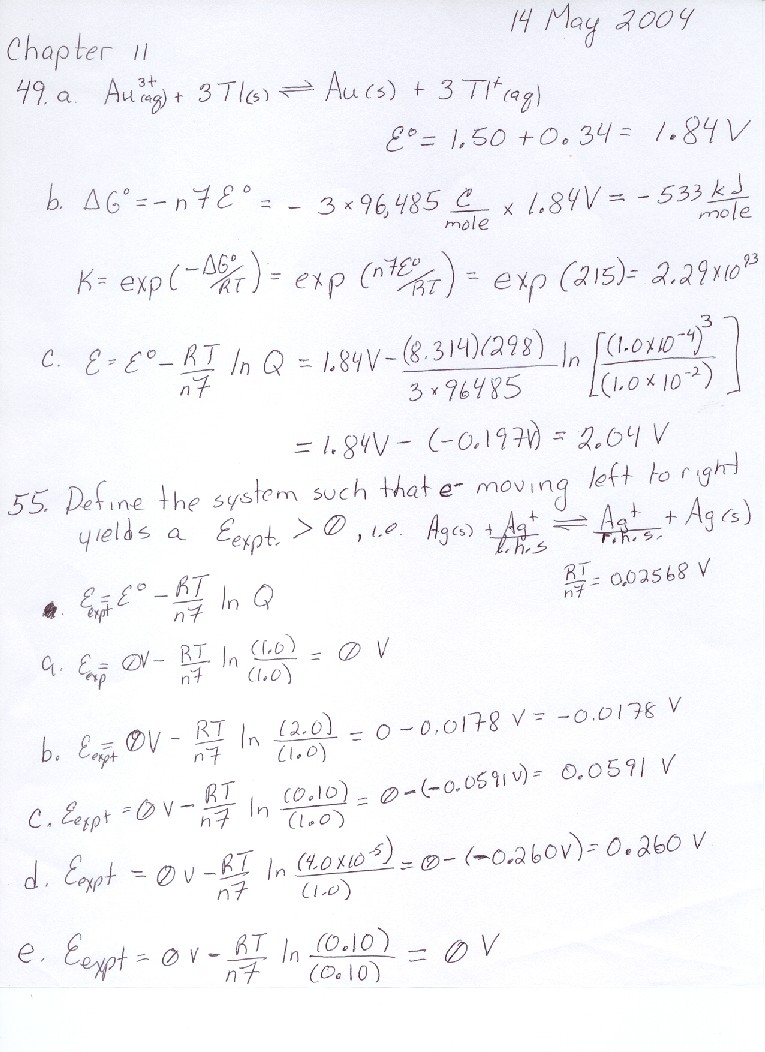 14 May 2004
Chapter 11
49. a. Au³⁺(aq) + 3 Tl(s) ⇌ Au(s) + 3 Tl⁺(aq)
ℰ° = 1.50 + 0.34 = 1.84 V
b. ΔG° = -nℱℰ° = - 3 × 96,485 C/mole × 1.84V = -533 kJ/mole
K = exp(-ΔG°/RT) = exp(nℱℰ°/RT) = exp(215) = 2.29×10⁹³
c. ℰ = ℰ° - RT/nℱ ln Q = 1.84V - (8.314)(298)/3×96485 ln [(1.0×10⁻⁴)³/(1.0×10⁻²)]
= 1.84V - (-0.197V) = 2.04 V
55. Define the system such that e⁻ moving left to right
yields a ℰexpt. > 0, i.e. Ag(s) + Ag⁺ l.h.s ⇌ Ag⁺ r.h.s. + Ag(s)
RT/nℱ = 0.02568 V
ℰexpt = ℰ° - RT/nℱ ln Q
a. ℰexp = 0V - RT/nℱ ln (1.0)/(1.0) = 0 V
b. ℰexpt = 0V - RT/nℱ ln (2.0)/(1.0) = 0 - 0.0178 V = -0.0178 V
c. ℰexpt = 0 V - RT/nℱ ln (0.10)/(1.0) = 0 - (-0.0591V) = 0.0591 V
d. ℰexpt = 0 V - RT/nℱ ln (4.0×10⁻⁵)/(1.0) = 0 - (-0.260V) = 0.260 V
e. ℰexpt = 0 V - RT/nℱ ln (0.10)/(0.10) = 0 V